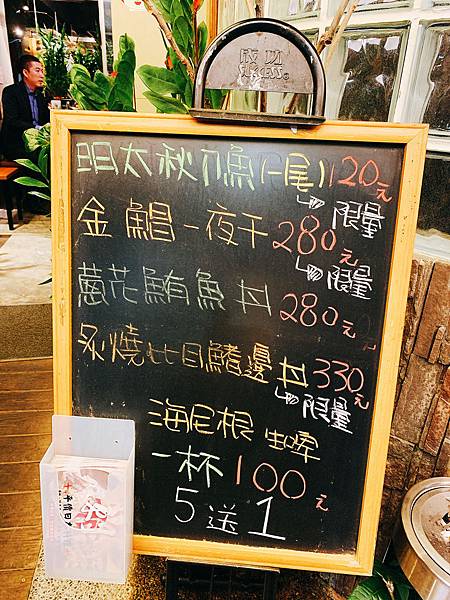 成功
SUCCESS
明太秋刀魚(一尾)120元
限量
金鯧一夜干280元
限量
蔥花鮪魚丼280元
炙燒比目鰭邊丼330元
限量
海尼根 生啤
一杯100元
5送1